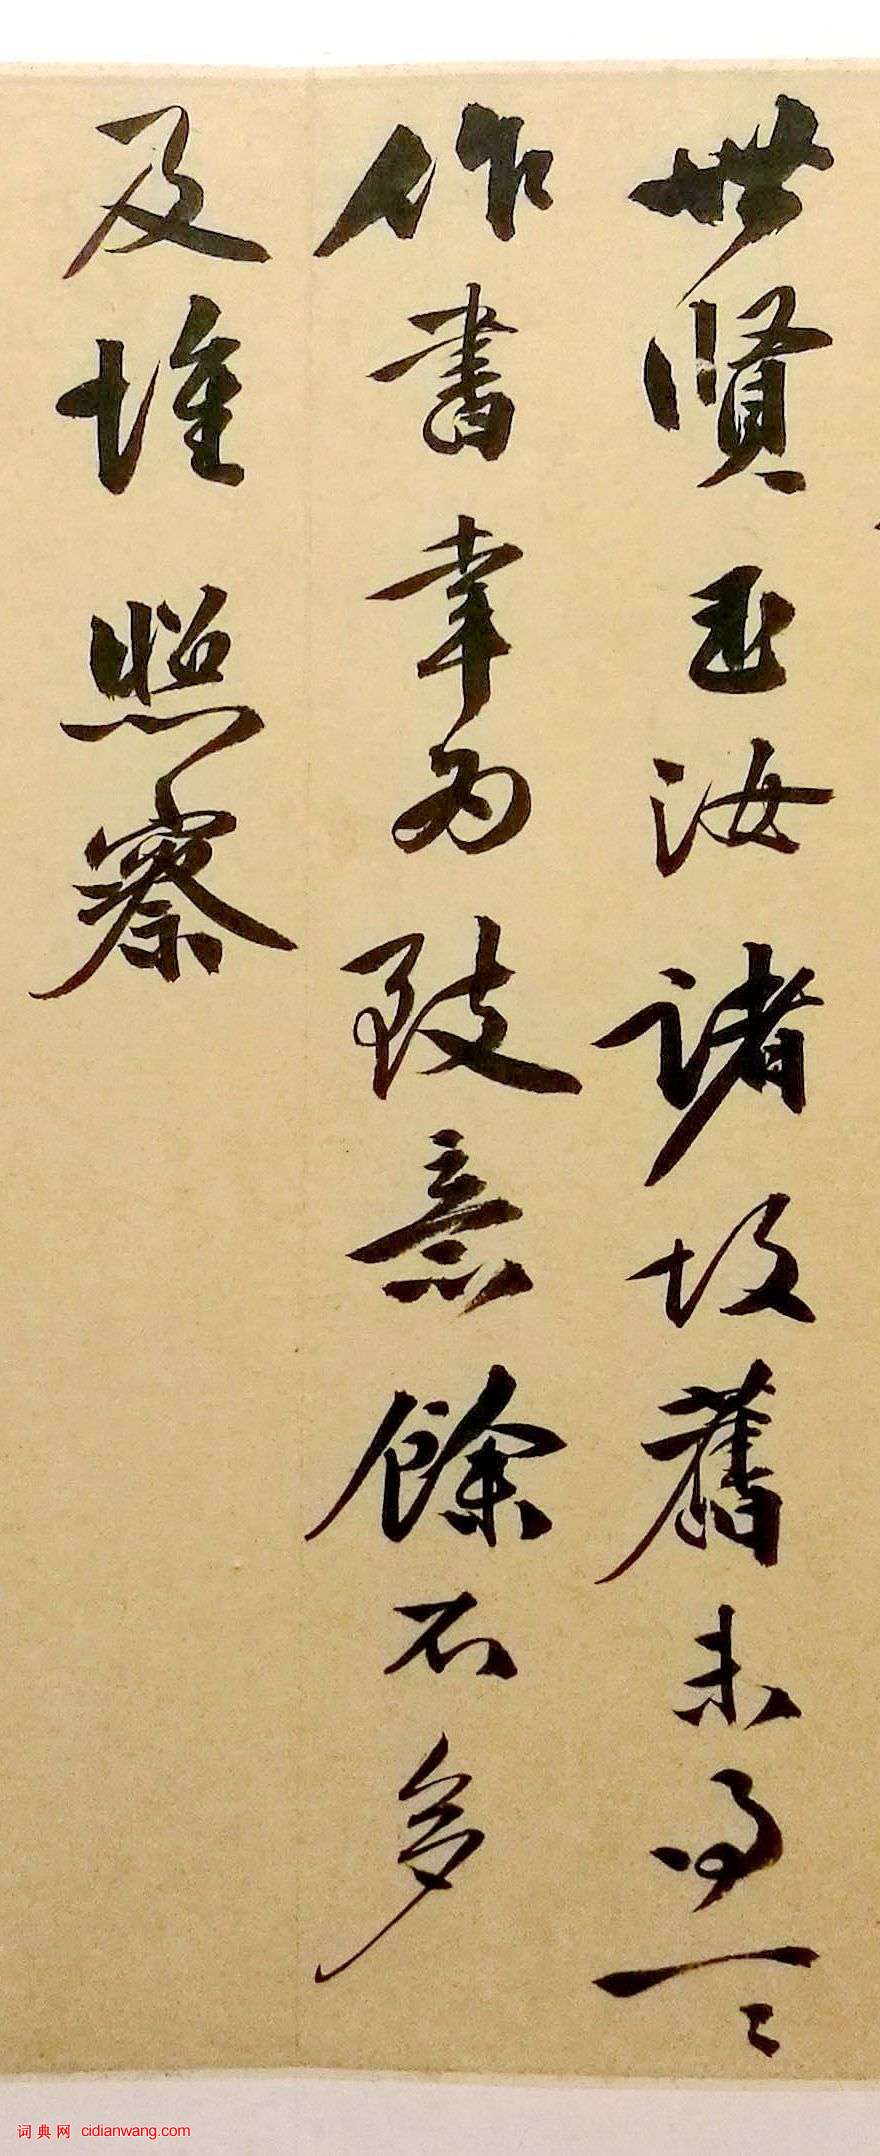 世賢玉汝諸故舊未得一〻
作書幸為致意餘不多
及惟照察
词典网 cidianwang.com